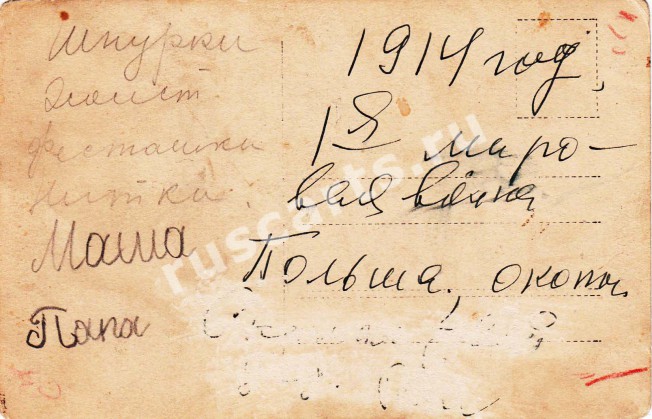 Шнурки
фисташки
нитки.
Маша
Папа
1914 год,
1я миро-
вая война
Польша, окопы
ruscarts.ru